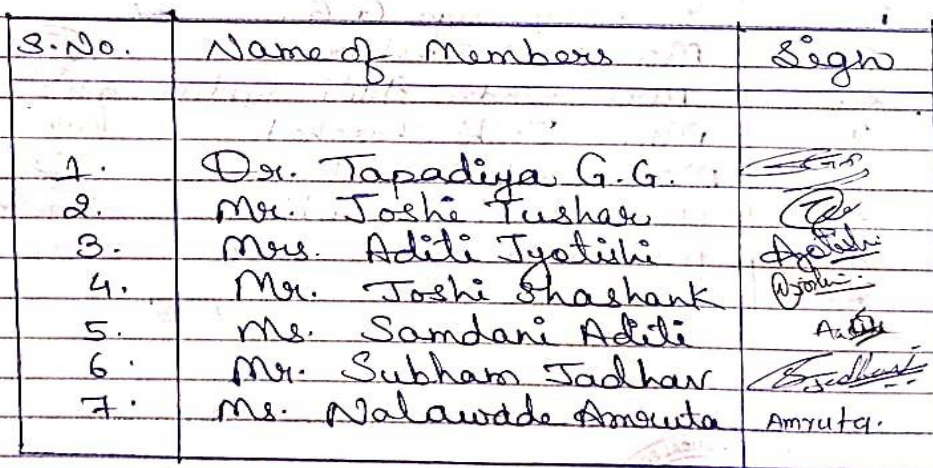 S.No. Name of Members Sign
1. Dr. Tapadiya G.G.
2. Mr. Joshi Tushar
3. Mrs. Aditi Jyotishi Ajyotishi
4. Mr. Joshi Shashank
5. Ms. Samdani Aditi
6. Mr. Subham Jadhav
7. Ms. Nalawade Amruta Amruta.